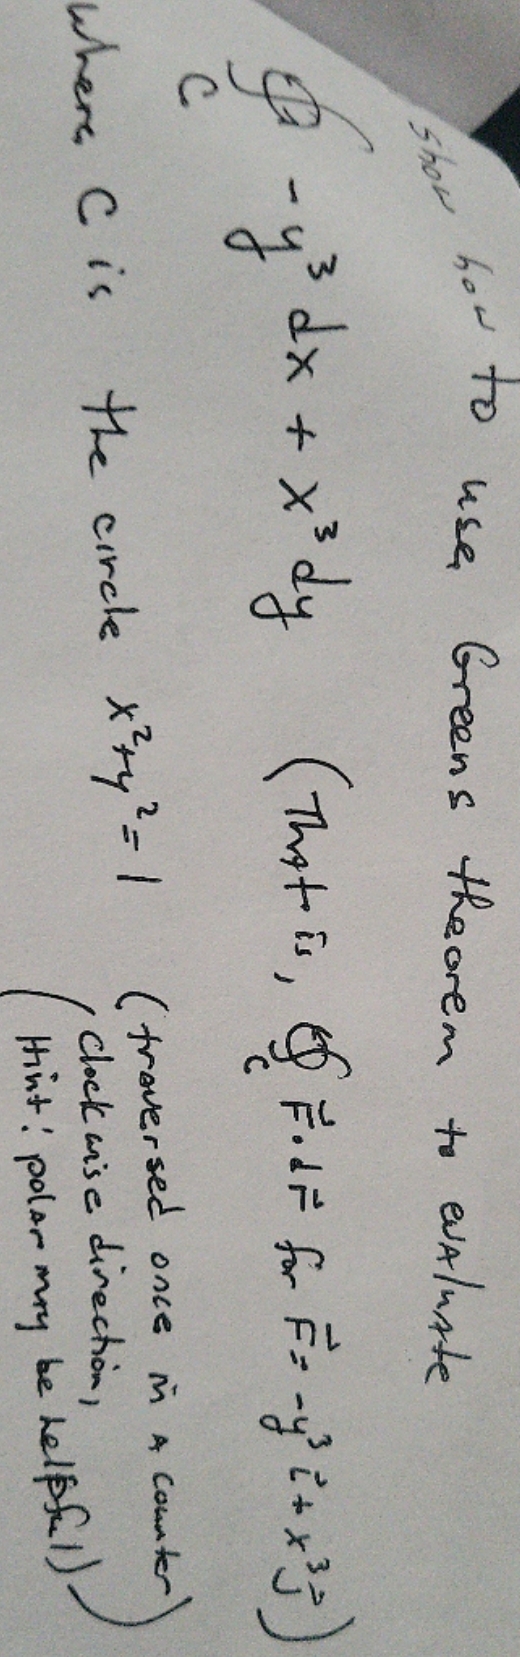 show how to use Greens theorem to evaluate
∮ -y³ dx + x³ dy (That is, ∮ F⃗·dr⃗ for F⃗ = -y³ i⃗ + x³ j⃗)
C C
where C is the circle x²+y²=1 (traversed once in a counter
clockwise direction,
(Hint: polar may be helpful))